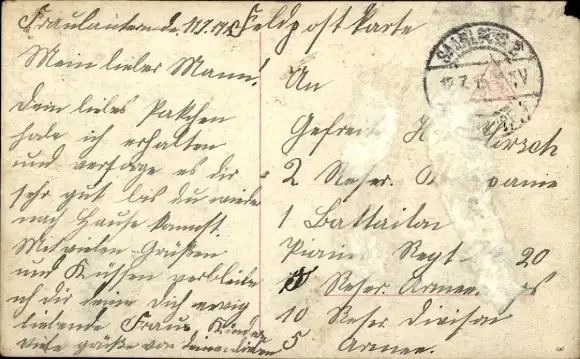 Fraulautern de. 11.7.1915
Feldpostkarte
Mein lieber Mann!
Dein liebes Pakchen
habe ich erhalten
und versorge es dir
sehr gut bis du wieder
nach Hause kommst.
Mit vielen Grüßen
und Küssen verbleibe
ich dir deine dich ewig
liebende Frau u. Kinder
viele grüße von deinen lieben
An
Gefreit Hirsch
2 Reser.
1 Battailon
Pionier Regt 20
Reser. Armee
10 Reser Division
5 Armee.